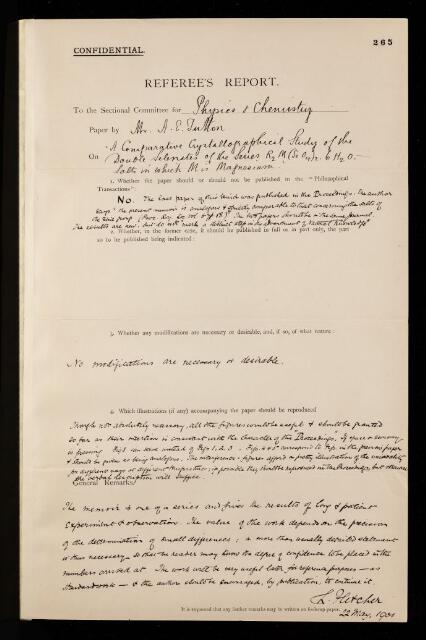 CONFIDENTIAL.
265
REFEREE'S REPORT.
To the Sectional Committee for Physics & Chemistry
Paper by Mr. A. E. Tutton
On "A Comparative Crystallographical Study of the
Double Selenates of the Series R2M(SeO4)2.6H2O.—
Salts in which M is Magnesium.
1. Whether the paper should or should not be published in the "Philosophical
Transactions":
No. The last paper of this kind was published in the Proceedings. The author
says "the present memoir is analogous & strictly comparable to that concerning the salts of
the zinc group (Proc. Roy. Soc. vol. 67 p 58)". The two papers should be in the same journal.
The results are new: but do not mark a distinct step in the advancement of Natural Knowledge
2. Whether, in the former case, it should be published in full or in part only, the part
so to be published being indicated:
3. Whether any modifications are necessary or desirable, and, if so, of what nature:
No modifications are necessary or desirable.
4. Which illustrations (if any) accompanying the paper should be reproduced
Though not absolutely necessary, all the figures would be useful & should be granted
so far as their insertion is consistent with the character of the "Proceedings". If space or economy
is pressing Fig 1 can serve instead of Figs 1, 2, 3. Figs 4 & 5 correspond to figs. in the previous paper
& should be given as being analogous. The interference-figures afford a pretty illustration of the
for different rays or different temperatures: if possible they should be reproduced in the Proceedings, but otherwise
the verbal description will suffice.
General Remarks:
The memoir is one of a series and gives the results of long & patient
experiment & observation. The value of the work depends on the precision
of the determination of small differences; a more than usually detailed statement
is thus necessary so that the reader may know the degree of confidence to be placed in the
numbers arrived at. The work will be very useful later for reference purposes — as
standard work — & the author should be encouraged, by publication, to continue it.
L. Fletcher
22 May, 1901
It is requested that any further remarks may be written on foolscap paper.